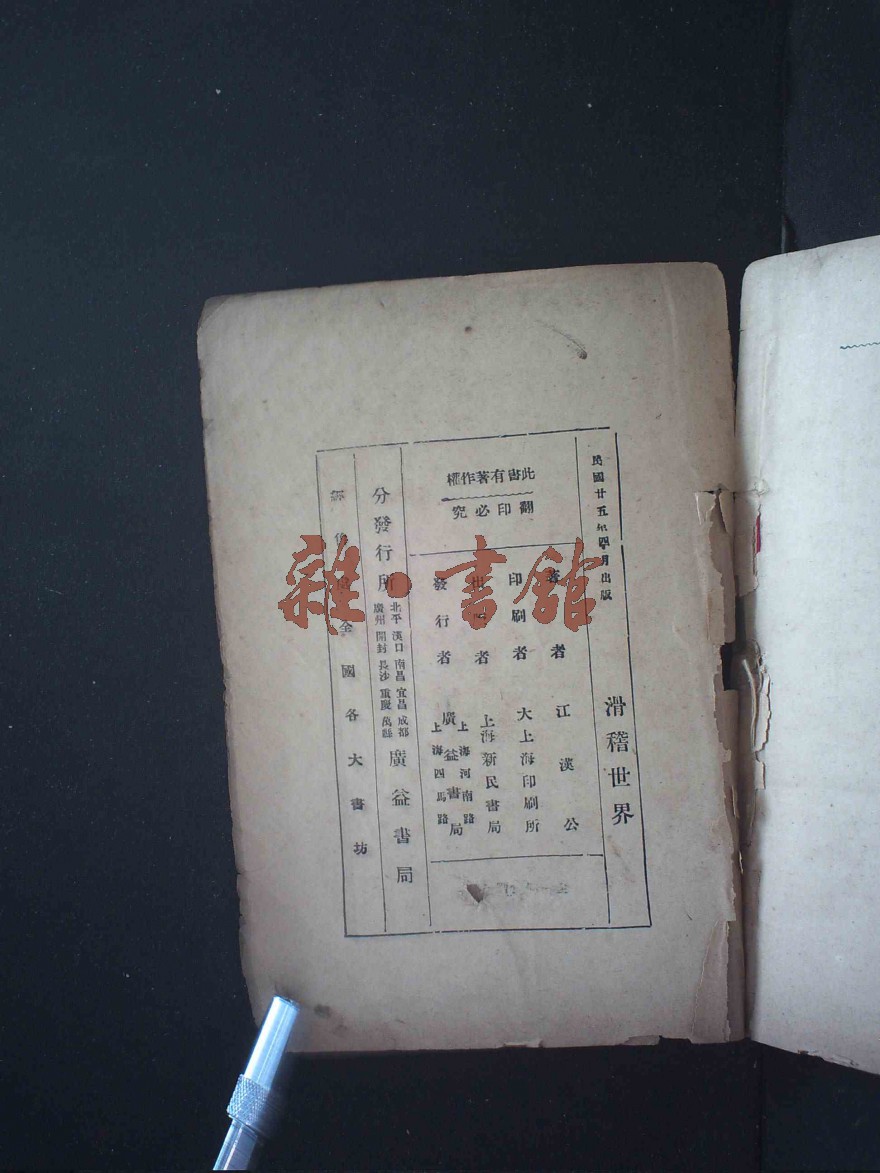 民國廿五年四月出版
滑稽世界
此書有著作權
翻印必究
著者 江漢公
印刷者 大上海印刷所
出版者 上海新民書局
發行者 上海河南路 廣益書局 上海四馬路
分發行所 北平 漢口 南昌 宜昌 成都 廣州 開封 長沙 重慶 萬縣 廣益書局
全國各大書坊
雜·書館